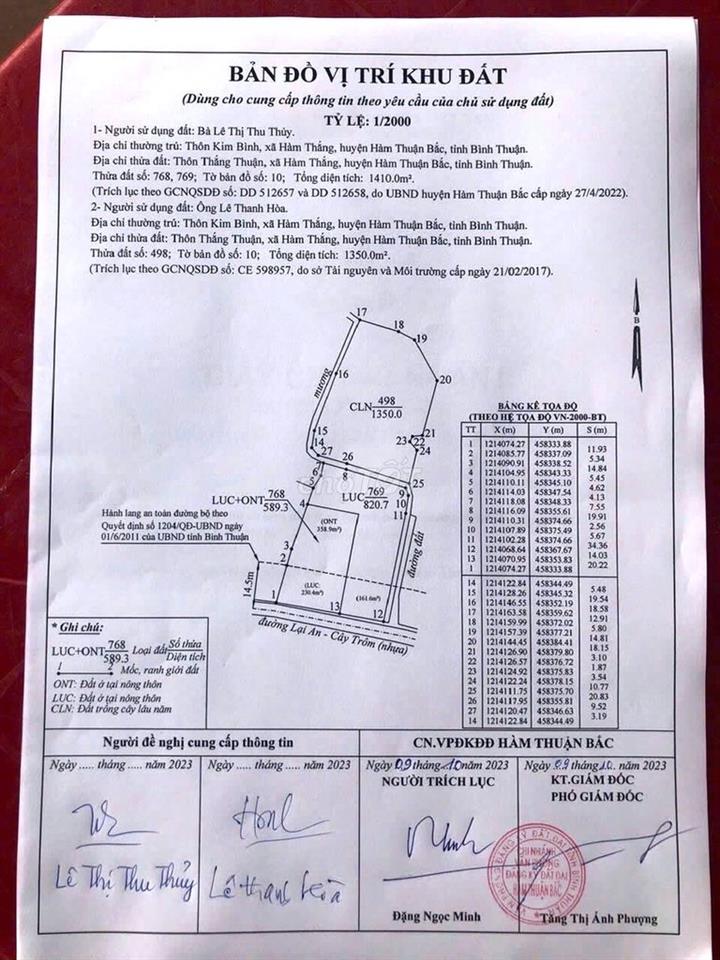 BẢN ĐỒ VỊ TRÍ KHU ĐẤT
(Dùng cho cung cấp thông tin theo yêu cầu của chủ sử dụng đất)
TỶ LỆ: 1/2000
1- Người sử dụng đất: Bà Lê Thị Thu Thủy.
Địa chỉ thường trú: Thôn Kim Bình, xã Hàm Thắng, huyện Hàm Thuận Bắc, tỉnh Bình Thuận.
Địa chỉ thửa đất: Thôn Thắng Thuận, xã Hàm Thắng, huyện Hàm Thuận Bắc, tỉnh Bình Thuận.
Thửa đất số: 768, 769; Tờ bản đồ số: 10; Tổng diện tích: 1410.0m².
(Trích lục theo GCNQSDĐ số: DD 512657 và DD 512658, do UBND huyện Hàm Thuận Bắc cấp ngày 27/4/2022).
2- Người sử dụng đất: Ông Lê Thanh Hòa.
Địa chỉ thường trú: Thôn Kim Bình, xã Hàm Thắng, huyện Hàm Thuận Bắc, tỉnh Bình Thuận.
Địa chỉ thửa đất: Thôn Thắng Thuận, xã Hàm Thắng, huyện Hàm Thuận Bắc, tỉnh Bình Thuận.
Thửa đất số: 498; Tờ bản đồ số: 10; Tổng diện tích: 1350.0m².
(Trích lục theo GCNQSDĐ số: CE 598957, do sở Tài nguyên và Môi trường cấp ngày 21/02/2017).
B
17
18
19
16
mương
20
CLN 498 1350.0
15
14
21
23 22
24
27
26
6
7
8
5
25
9
10
11
4
LUC+ONT 768 589.3
LUC 769 820.7
(ONT 358.9m²)
Hành lang an toàn đường bộ theo
Quyết định số 1204/QĐ-UBND ngày
01/6/2011 của UBND tỉnh Bình Thuận
đường đất
3
2
14.5m
(LUC: 230.4m²)
(161.6m²)
1
13
12
đường Lại An - Cây Trôm (nhựa)
BẢNG KÊ TỌA ĐỘ
(THEO HỆ TỌA ĐỘ VN-2000-BT)
TT X (m) Y (m) S (m)
1 1214074.27 458333.88
11.93
2 1214085.77 458337.09
5.34
3 1214090.91 458338.52
14.84
4 1214104.95 458343.33
5.45
5 1214110.11 458345.10
4.62
6 1214114.03 458347.54
4.13
7 1214118.08 458348.33
7.55
8 1214116.09 458355.61
19.91
9 1214110.31 458374.66
2.56
10 1214107.89 458375.49
5.67
11 1214102.28 458374.66
34.36
12 1214068.64 458367.67
14.03
13 1214070.95 458353.83
20.22
1 1214074.27 458333.88
14 1214122.84 458344.49
5.48
15 1214128.26 458345.32
19.54
16 1214146.55 458352.19
18.58
17 1214163.58 458359.62
12.91
18 1214159.99 458372.02
5.80
19 1214157.39 458377.21
14.81
20 1214144.45 458384.41
18.15
21 1214126.90 458379.80
3.10
22 1214126.57 458376.72
1.87
23 1214124.92 458375.83
3.54
24 1214122.24 458378.15
10.77
25 1214111.75 458375.70
20.83
26 1214117.95 458355.81
9.52
27 1214120.47 458346.63
3.19
14 1214122.84 458344.49
* Ghi chú:
LUC+ONT 768 589.3 Loại đất Số thửa Diện tích
1 2 Mốc, ranh giới đất
ONT: Đất ở tại nông thôn
LUC: Đất ở tại nông thôn
CLN: Đất trồng cây lâu năm
Người đề nghị cung cấp thông tin
CN.VPĐKĐĐ HÀM THUẬN BẮC
Ngày ..... tháng ..... năm 2023
Ngày ..... tháng ..... năm 2023
Ngày 09 tháng 10 năm 2023
NGƯỜI TRÍCH LỤC
Ngày 09 tháng 10 năm 2023
KT.GIÁM ĐỐC
PHÓ GIÁM ĐỐC
Lê Thị Thu Thủy
Lê Thanh Hòa
VĂN PHÒNG ĐĂNG KÝ ĐẤT ĐAI TỈNH BÌNH THUẬN
CHI NHÁNH
VĂN PHÒNG
ĐĂNG KÝ ĐẤT ĐAI
HÀM THUẬN BẮC
Đặng Ngọc Minh
Tăng Thị Ánh Phượng